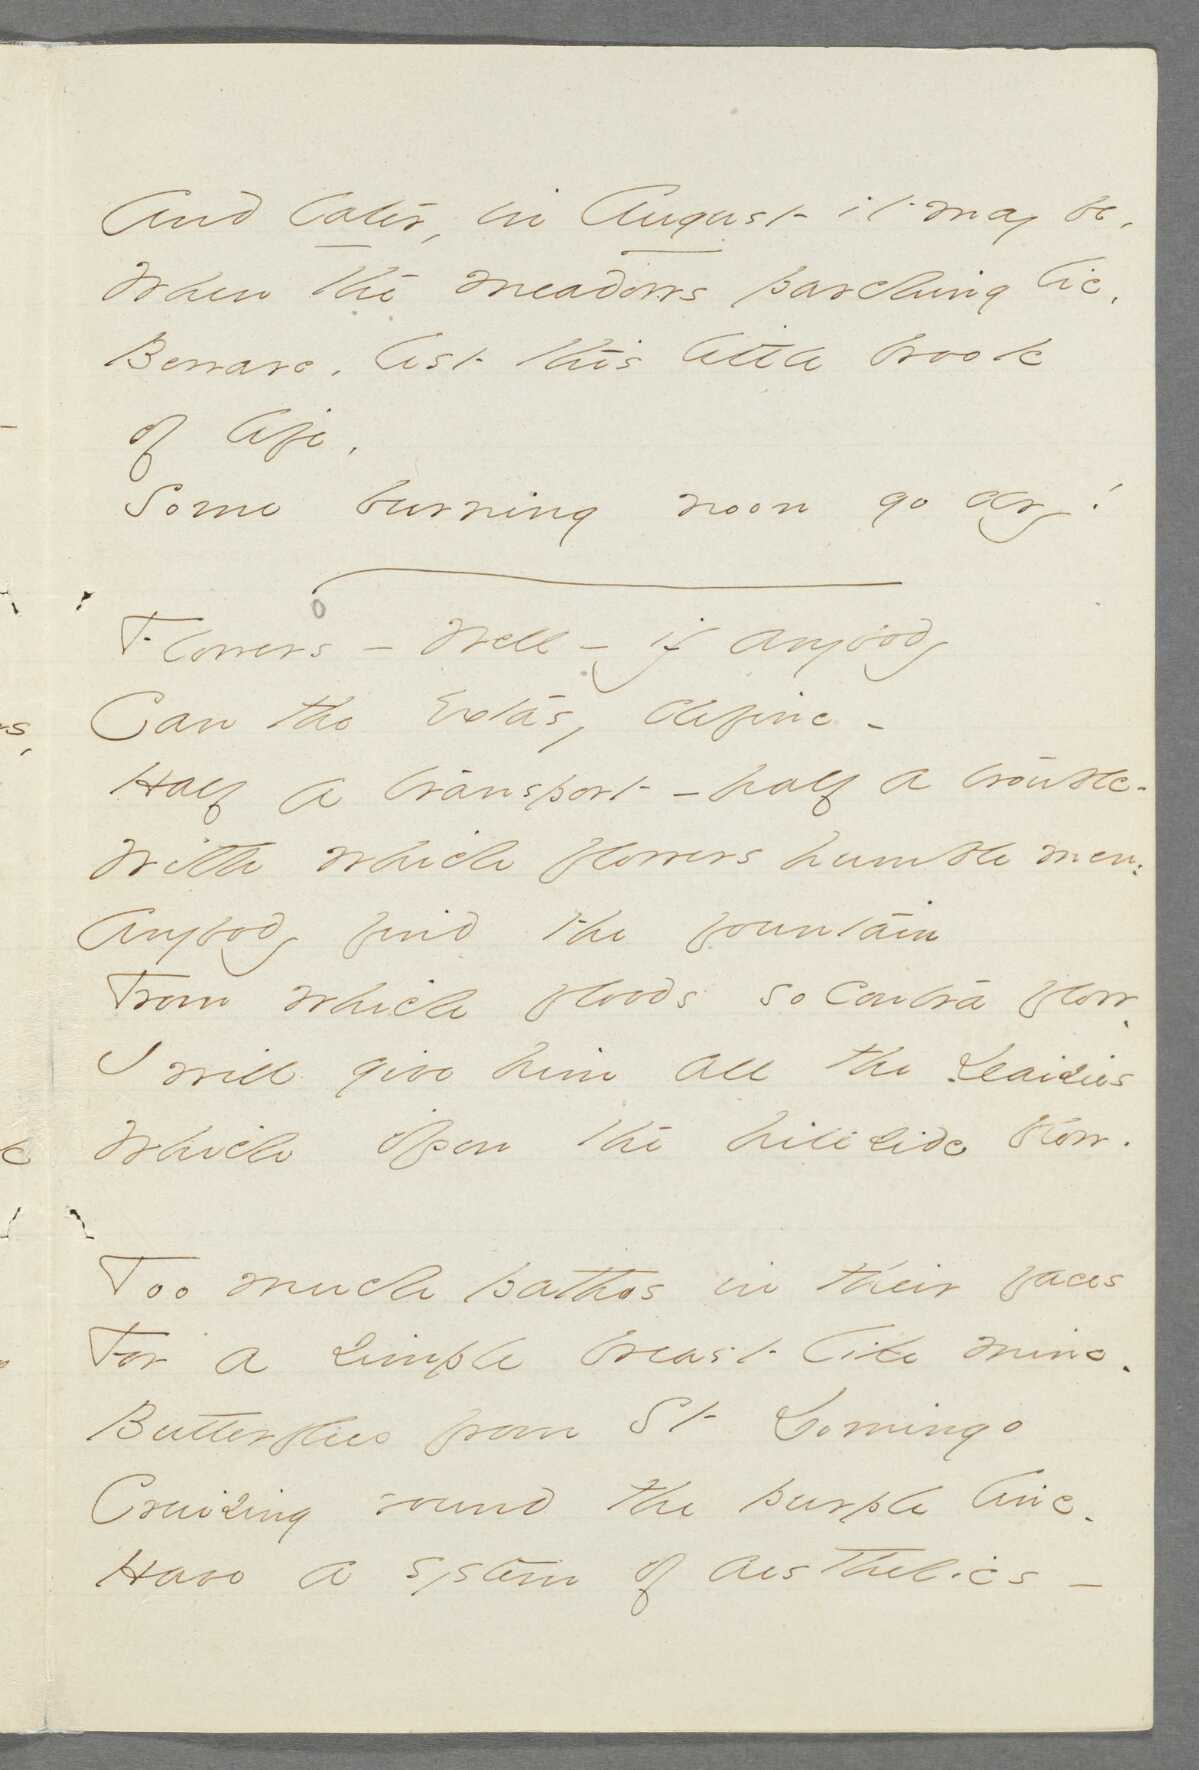 And later, in August it may be,
When the meadows parching lie,
Beware, lest this little brook
of life,
Some burning noon go dry!
Flowers - Well - if anybody
Can the extasy define -
Half a transport - half a trouble -
With which flowers humble men:
Anybody find the fountain
From which floods so contra flow,
I will give him all the Daisies
Which upon the hillside blow.
Too much pathos in their faces
For a simple breast like mine,
Butterflies from St Domingo
Cruising round the purple line,
Have a system of aesthetics -